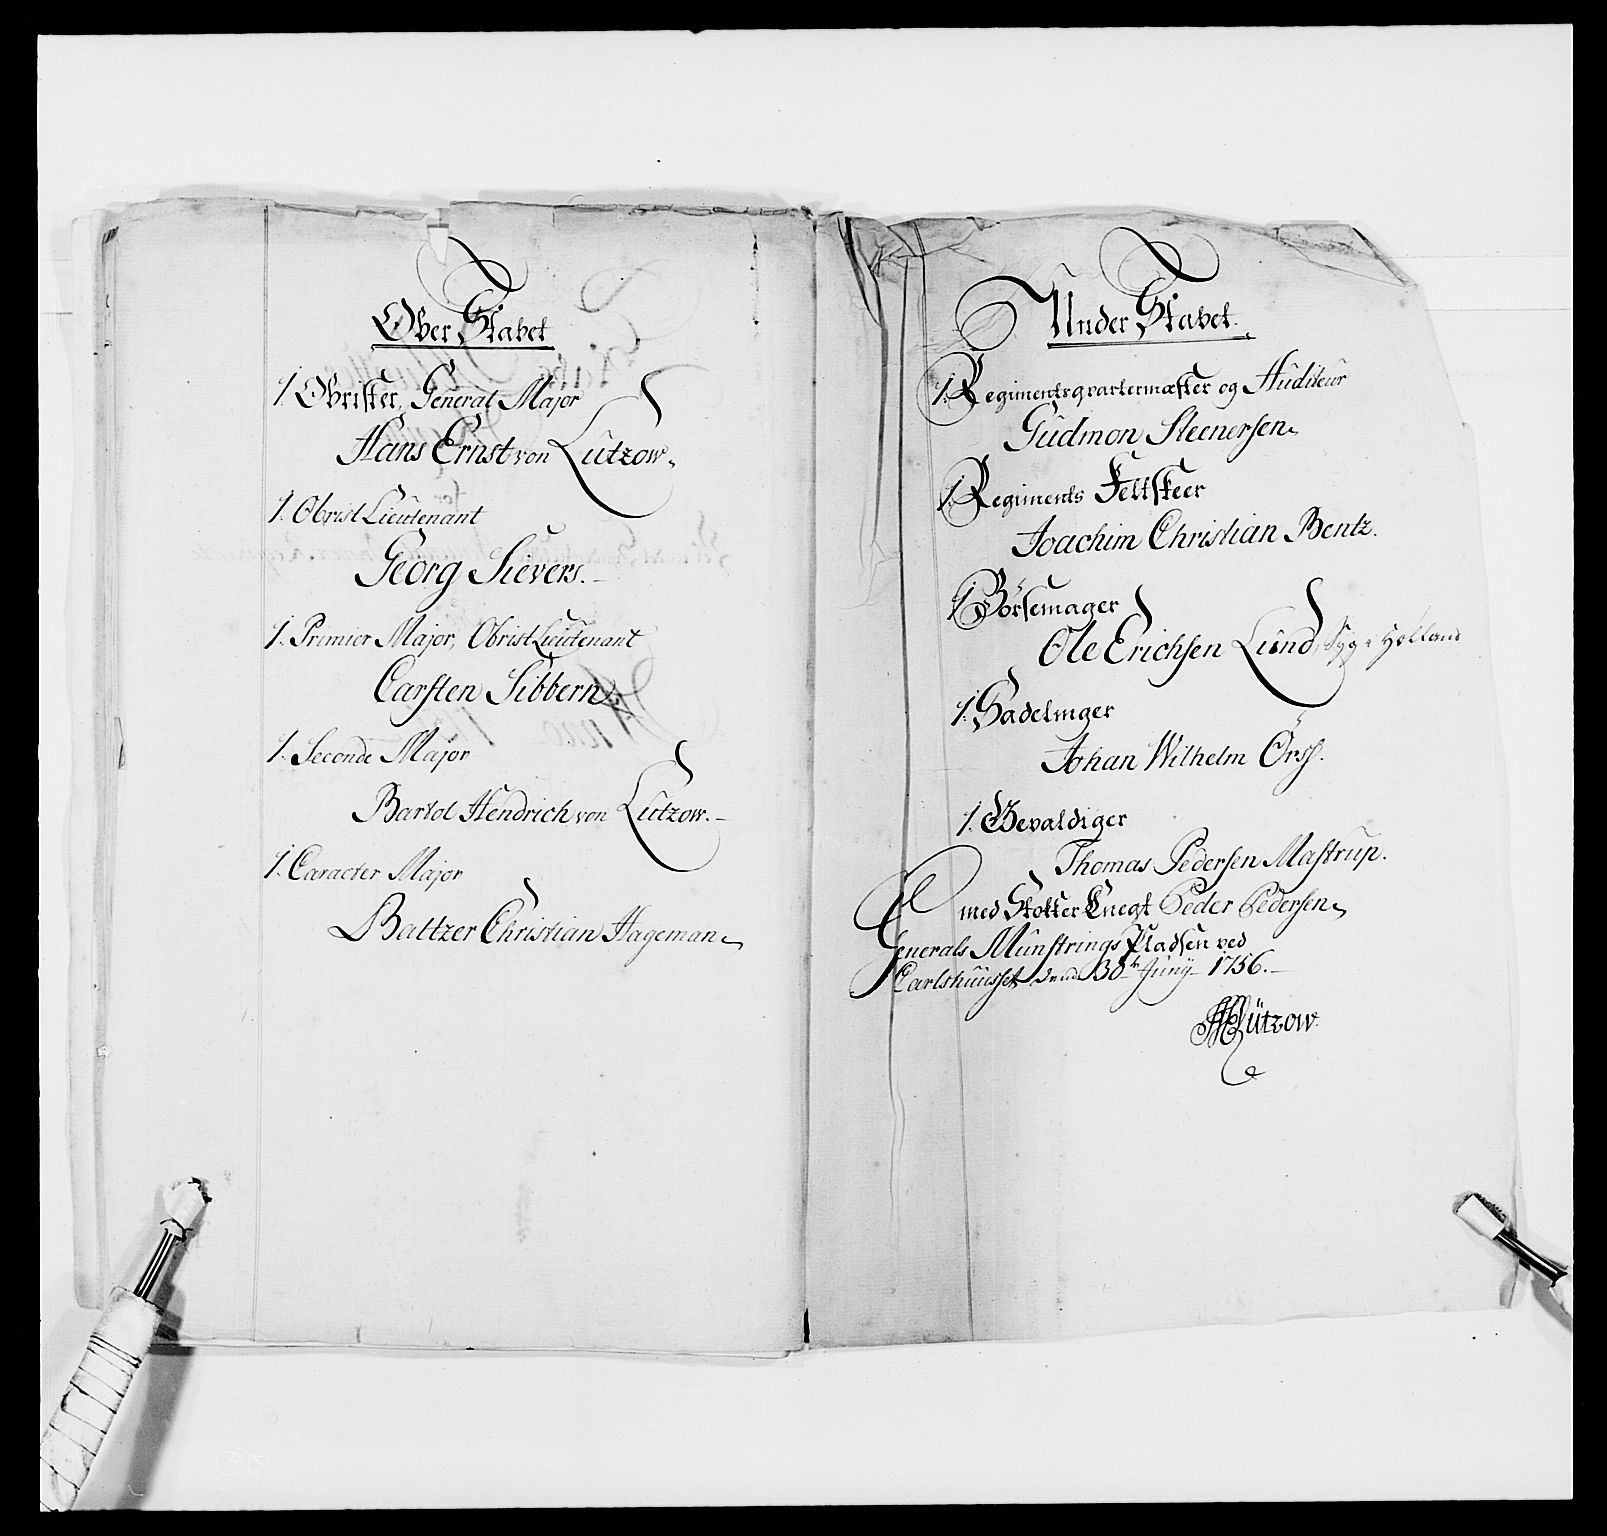 Over Stabet
1. Obrister, General Major
Hans Ernst von Lützow.
1. Obrist Lieutenant
Georg Sievers.
1. Primier Major, Obrist Lieutenant
Carsten Sibbern.
1. Seconde Major
Bartol Hendrich von Lützow.
1. Caracter Major
Baltzer Christian Hageman.
Under Stabet.
1. Regimentsqvartermæster og Auditeur
Gudmon Steenersen.
1. Regiments Feltskeer
Joachim Christian Bentz.
1. Börsemager
Ole Erichsen Lund, Syg i Holland
1. Sadelmager
Johan Wilhelm Örss.
1. Gevaldiger
Thomas Pedersen Mastrup.
med Stokker Knegt Peder Pedersen.
Generals Münstrings Pladsen ved
Carlshuusset, 30te Junÿ 1756.
Lützow.